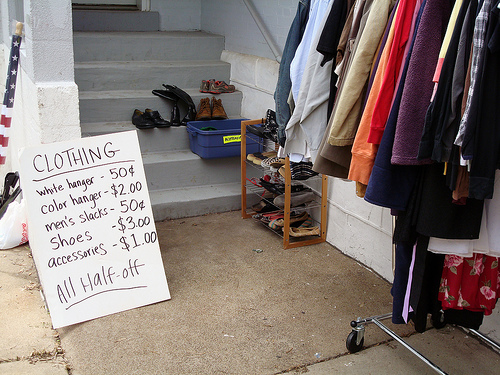 CLOTHING
white hanger - 50¢
color hanger - $2.00
men's slacks - 50¢
Shoes - $3.00
accessories - $1.00
All Half-off